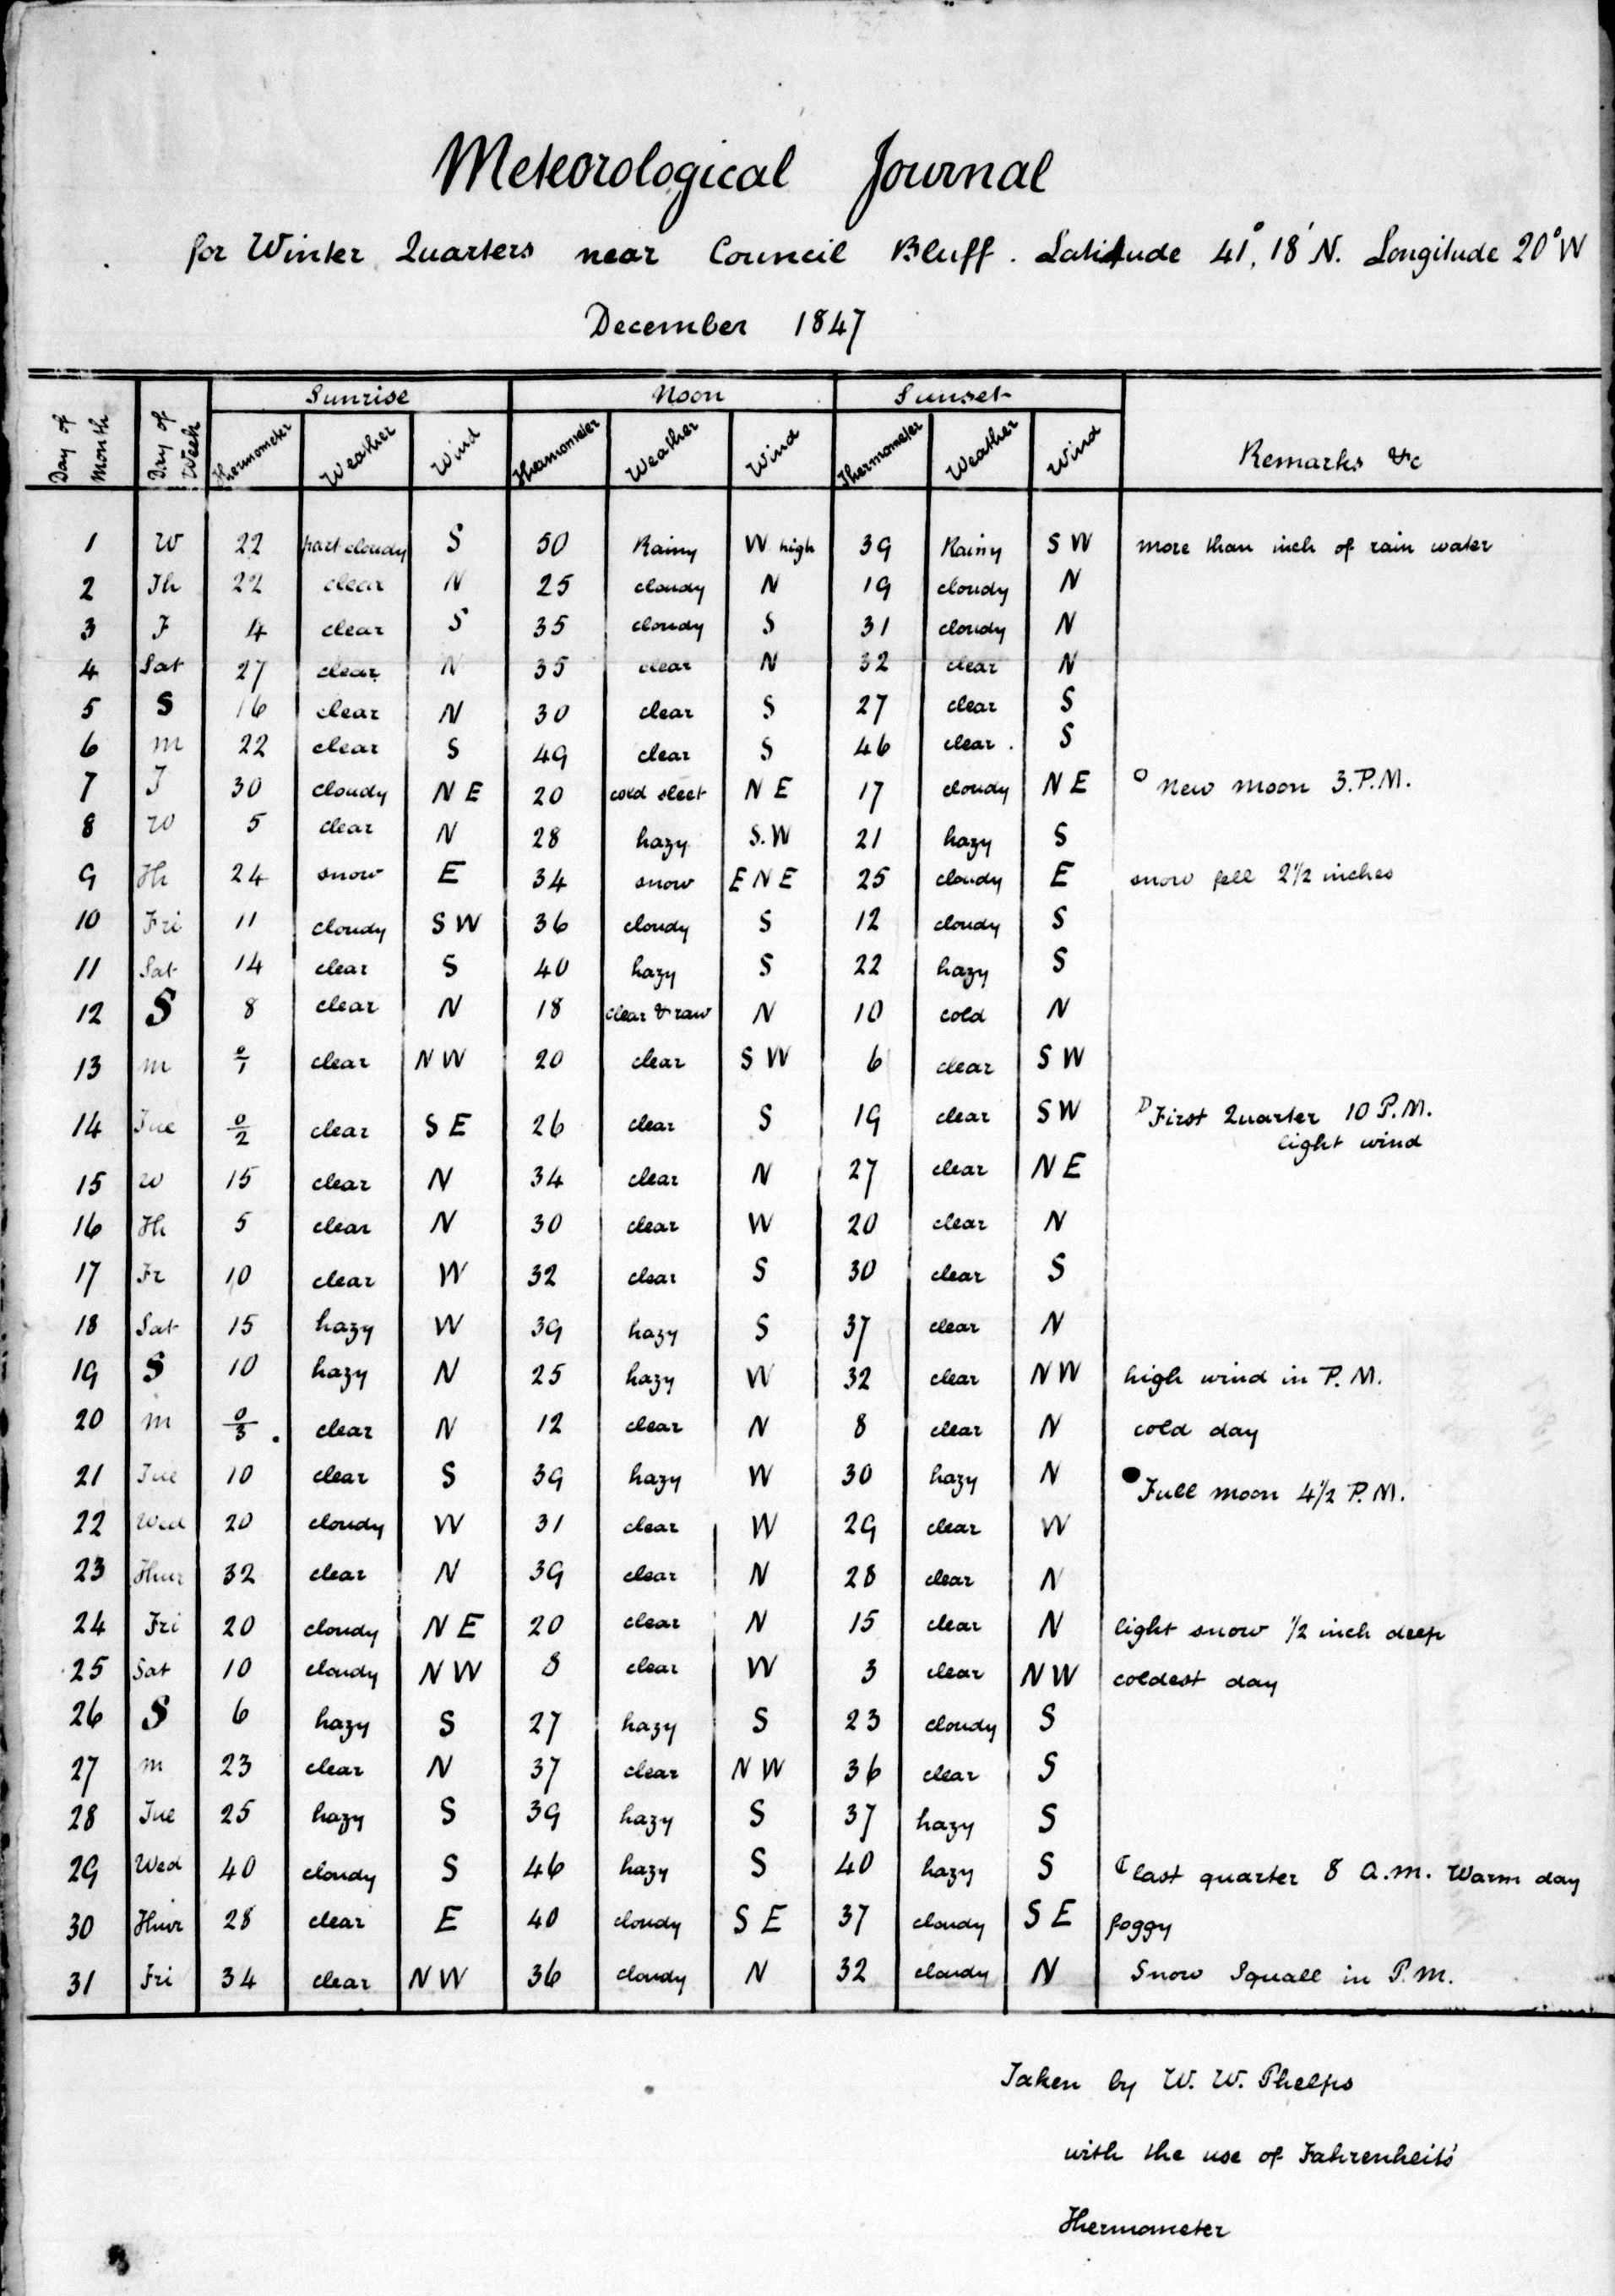 Meteorological Journal
for Winter Quarters near Council Bluff. Latitude 41°, 18' N. Longitude 20° W
December 1847
Sunrise Noon Sunset
Day of Month Day of Week Thermometer Weather Wind Thermometer Weather Wind Thermometer Weather Wind Remarks &c
1 W 22 part cloudy S 50 Rainy W high 39 Rainy S W more than inch of rain water
2 Th 22 clear N 25 cloudy N 19 cloudy N
3 F 4 clear S 35 cloudy S 31 cloudy N
4 Sat 27 clear N 35 clear N 32 clear N
5 S 16 clear N 30 clear S 27 clear S
6 m 22 clear S 49 clear S 46 clear . S
7 T 30 cloudy N E 20 cold sleet N E 17 cloudy N E New moon 3. P.M.
8 W 5 clear N 28 hazy S.W 21 hazy S
9 Th 24 snow E 34 snow E N E 25 cloudy E snow fell 2 1/2 inches
10 Fri 11 cloudy S W 36 cloudy S 12 cloudy S
11 Sat 14 clear S 40 hazy S 22 hazy S
12 S 8 clear N 18 clear & raw N 10 cold N
13 m 0/1 clear N W 20 clear S W 6 clear S W
14 Tue 0/2 clear S E 26 clear S 19 clear S W First Quarter 10 P.M.
light wind
15 w 15 clear N 34 clear N 27 clear N E
16 Th 5 clear N 30 clear W 20 clear N
17 Fr 10 clear W 32 clear S 30 clear S
18 Sat 15 hazy W 39 hazy S 37 clear N
19 S 10 hazy N 25 hazy W 32 clear N W high wind in P. M.
20 m 0/3 . clear N 12 clear N 8 clear N cold day
21 Tue 10 clear S 39 hazy W 30 hazy N Full moon 4 1/2 P. M.
22 Wed 20 cloudy W 31 clear W 29 clear W
23 Thur 32 clear N 39 clear N 28 clear N
24 Fri 20 cloudy N E 20 clear N 15 clear N light snow 1/2 inch deep
25 Sat 10 cloudy N W 8 clear W 3 clear N W coldest day
26 S 6 hazy S 27 hazy S 23 cloudy S
27 m 23 clear N 37 clear N W 36 clear S
28 Tue 25 hazy S 39 hazy S 37 hazy S
29 Wed 40 cloudy S 46 hazy S 40 hazy S last quarter 8 A.M. Warm day
30 Thur 28 clear E 40 cloudy S E 37 cloudy S E foggy
31 Fri 34 clear N W 36 cloudy N 32 cloudy N Snow Squall in P. M.
Taken by W. W. Phelps
with the use of Fahrenheit's
Thermometer